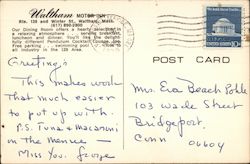 Waltham MOTOR INN
Rts. 128 and Winter St., Waltham, Mass.
(617) 890-2800
Our Dining Room offers a hearty selection in
a relaxing atmosphere . . . serving breakfast,
luncheon and dinner. You'll like the
fully different Pendulum Cocktail Lounge, too.
Free parking . . . swimming pool . . . close to
all industry in the 128 Area.
POST CARD
Greetings
This makes work
that much easier
to put up with.
P.S. Tuna & Macaroni
on the menu —
Miss You. George
Mrs. Eva Beach
103 Wade Street
Bridgeport
Conn 06604